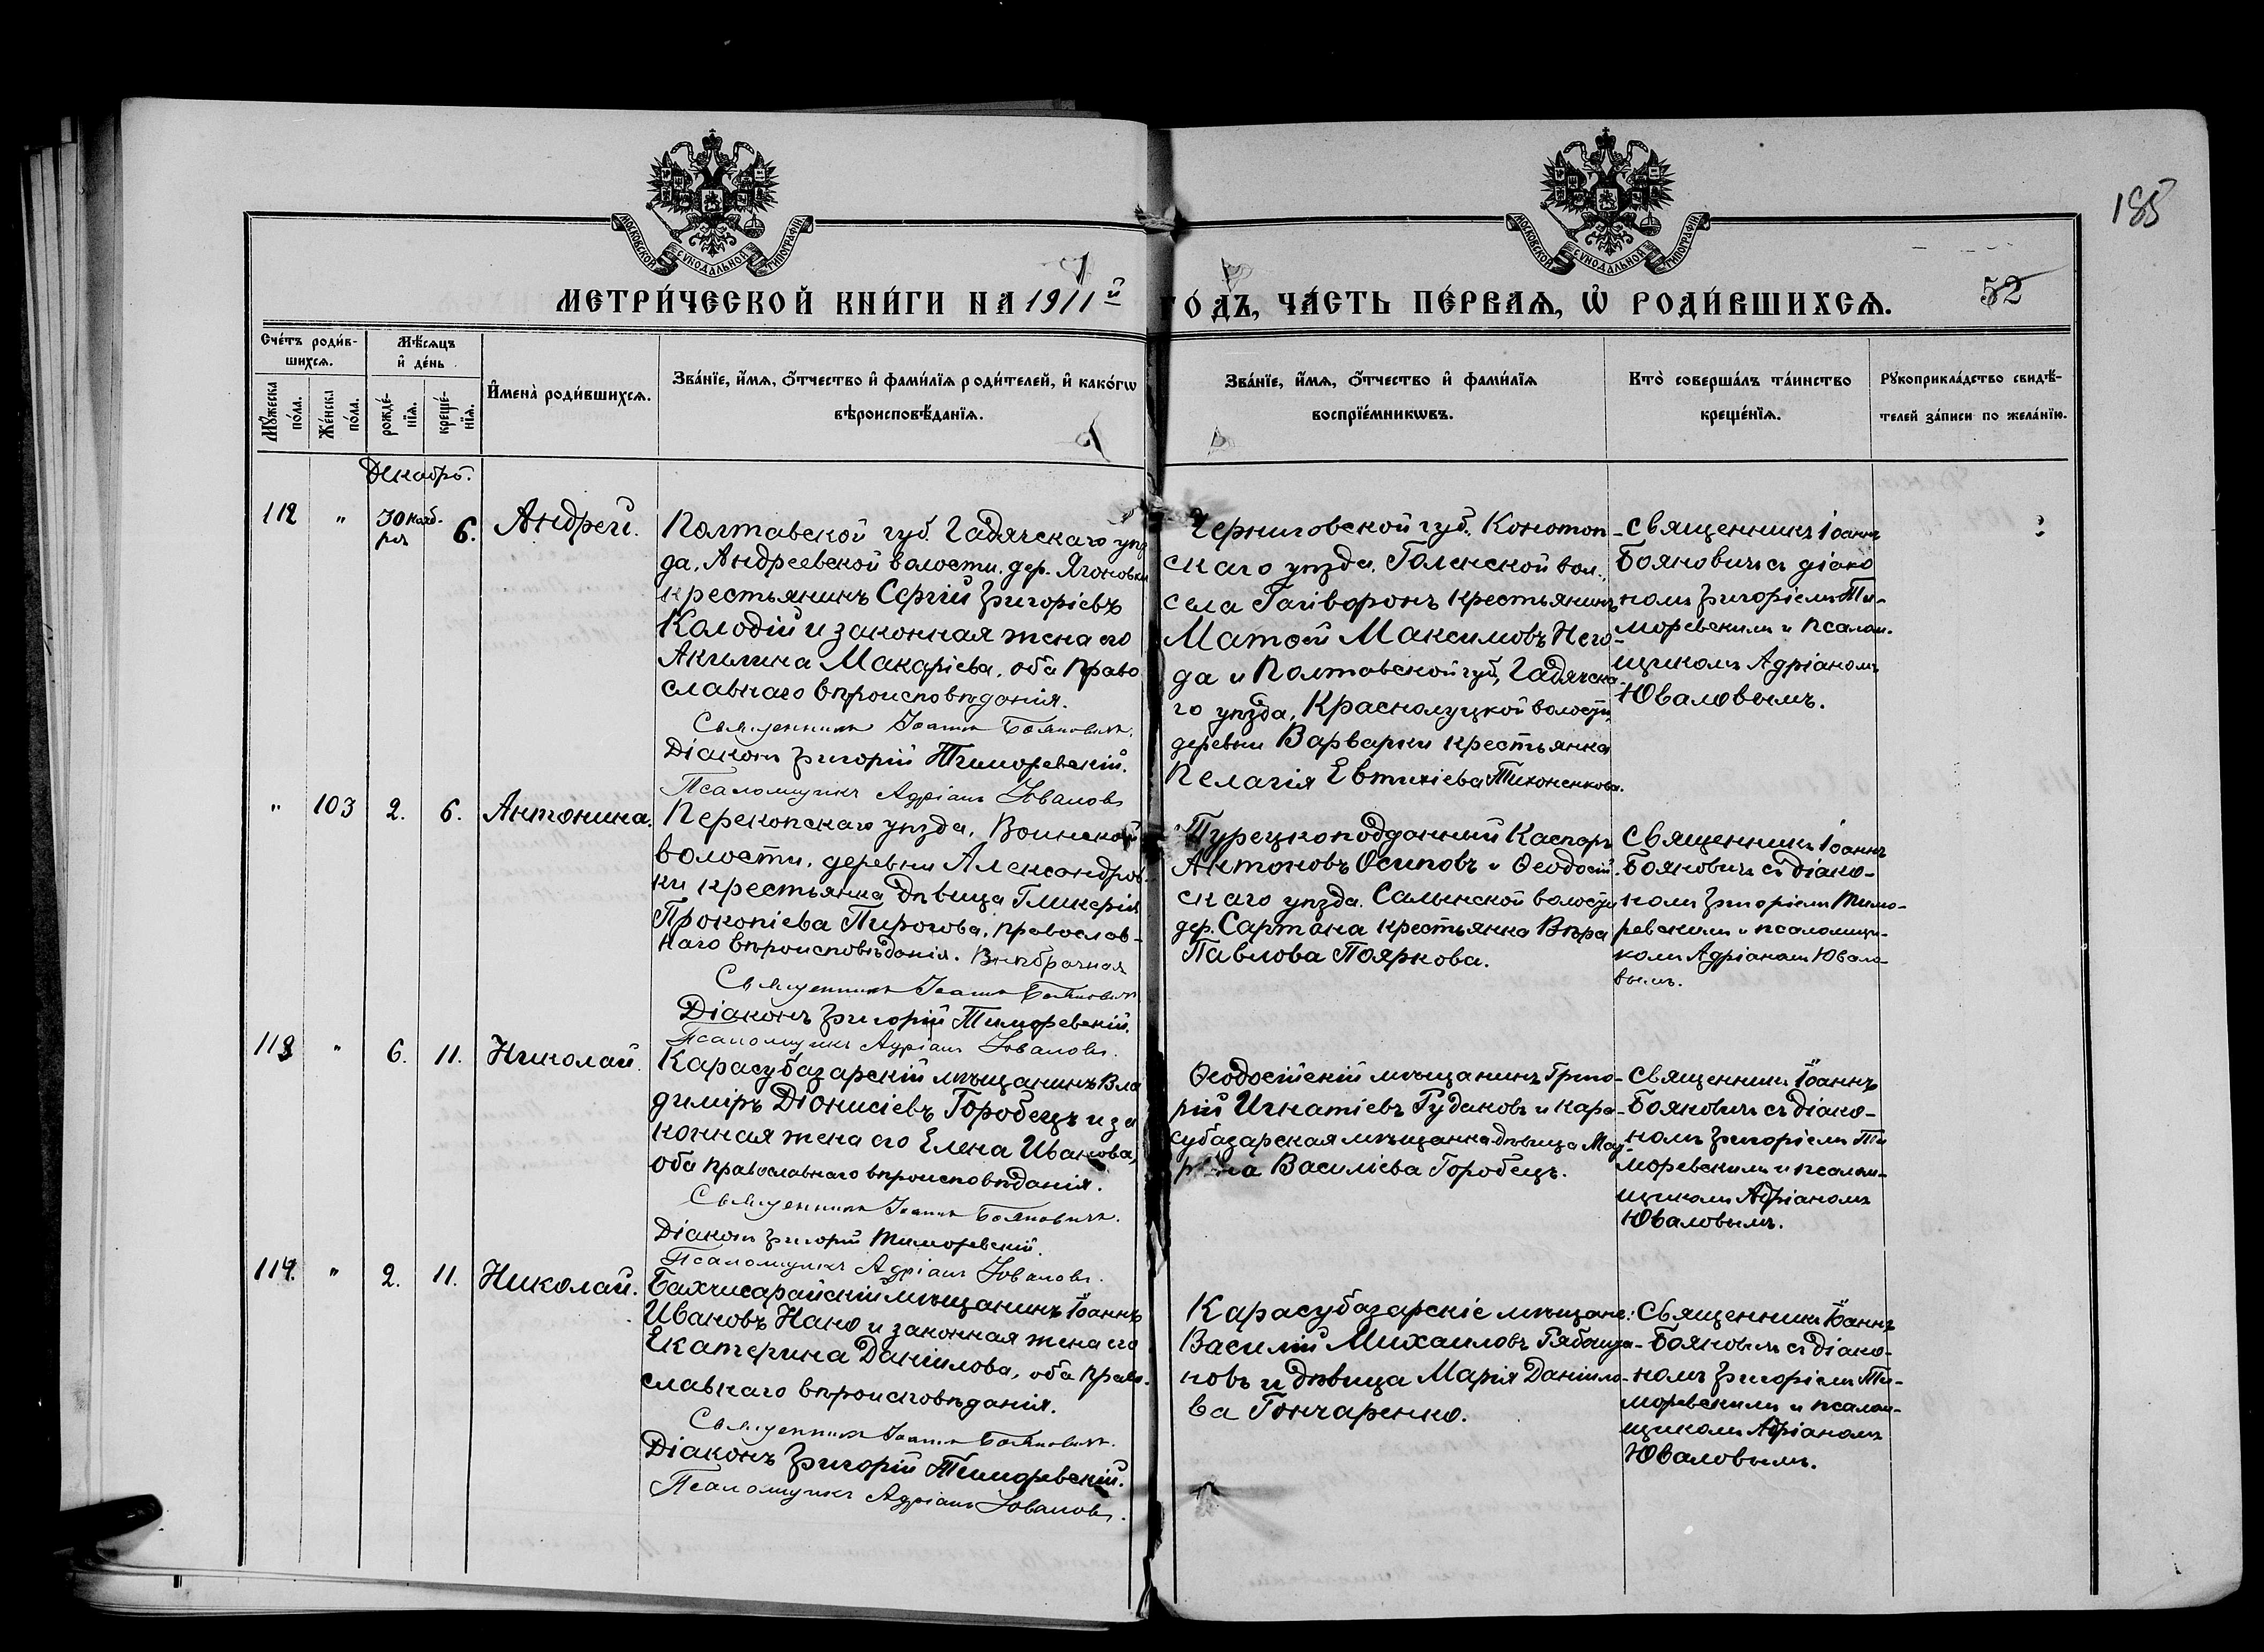 185
МОСКОВСКОЙ СУНОДАЛЬНОЙ ТИПОГРАФІИ
МОСКОВСКОЙ СУНОДАЛЬНОЙ ТИПОГРАФІИ
МЕТРИ́ЧЕСКОЙ КНИ́ГИ НА 1911й ГО́ДЪ, ЧА́СТЬ ПЕ́РВАЯ, Ѡ҆ РОДИ́ВШИХСЯ.
52
Сче́тъ роди́в-
шихся.
Мꙋ́жеска по́ла.
Же́нска по́ла.
Мѣ́сяцъ
и҆ де́нь
рожде́-
нїя.
креще́-
нїя.
И҆мена̀ роди́вшихся.
Зва́нїе, и҆́мя, ѻ҆́тчество и҆ фами́лїя роди́телей, и҆ како́гѡ
вѣроисповѣ́данїя.
Зва́нїе, и҆́мя, ѻ҆́тчество и҆ фами́лїя
воспрїе́мникѡвъ.
Кто̀ соверша́лъ та́инство
креще́нїя.
Рꙋкоприкла́дство свидѣ́-
телей за́писи по жела́нїю.
Декабрь.
112 " 30 Нояб-
ря 6. Андрей.
Полтавской губ. Гадячскаго уѣз
да, Андреевской волости, дер. Ягоновки
крестьянинъ Сергій Григоріевъ
Колодій и законная жена его
Акилина Макаріева, оба право
славнаго вѣроисповѣданія.
Священникъ Іоаннъ Бояновичъ.
Діаконъ Григорій Тиморевскій.
Псаломщикъ Адріанъ Юваловъ
Черниговской губ. Конотоп-
скаго уѣзда, Голенской вол.,
села Гайворонъ крестьянинъ
Матѳей Максимовъ Него-
да и Полтавской губ., Гадячска-
го уѣзда, Краснолуцкой волости,
деревни Варварки крестьянка
Пелагія Евтихіева Тихоненкова.
Священникъ Іоаннъ
Бояновичъ съ діако
номъ Григоріемъ Ти-
моревскимъ и псалом-
щикомъ Адріаномъ
Юваловымъ.
" 103 2. 6. Антонина.
Перекопскаго уѣзда, Воинской
волости, деревни Александров-
ки крестьянка дѣвица Гликерія
Прокопіева Пирогова, православ-
наго вѣроисповѣданія. Внѣбрачная
Священникъ Іоаннъ Бояновичъ
Діаконъ Григорій Тиморевскій.
Псаломщикъ Адріанъ Юваловъ.
Турецкоподданный Каспаръ
Антоновъ Осиповъ и Ѳеодосій-
скаго уѣзда. Салынской волости
дер. Сартана крестьянка Вѣра
Павлова Пояркова.
Священникъ Іоаннъ
Бояновичъ съ діако-
номъ Григоріемъ Тимо-
ревскимъ и псаломщи-
комъ Адріаномъ Ювало-
вымъ.
113 " 6. 11. Николай.
Карасубазарскій мѣщанинъ Вла
диміръ Діонисіевъ Горобецъ и за
конная жена его Елена Иванова,
оба православнаго вѣроисповѣданія.
Священникъ Іоаннъ Бояновичъ.
Діаконъ Григорій Тиморевскій.
Псаломщикъ Адріанъ Юваловъ.
Ѳеодосійскій мѣщанинъ Григо-
рій Игнатіевъ Рудаковъ и Кара-
субазарская мѣщанка дѣвица
Василіева Горобецъ.
Священникъ Іоаннъ
Бояновичъ съ діако-
номъ Григоріемъ Ти
моревскимъ и псалом-
щикомъ Адріаномъ
Юваловымъ.
114. " 2. 11. Николай.
Бахчисарайскій мѣщанинъ Іоаннъ
Ивановъ Нано и законная жена его
Екатерина Даніилова, оба право-
славнаго вѣроисповѣданія.
Священникъ Іоаннъ Бояновичъ.
Діаконъ Григорій Тиморевскій.
Псаломщикъ Адріанъ Юваловъ.
Карасубазарскіе мѣщане:
Василій Михаиловъ Рябоща-
новъ и дѣвица Марія Даніило-
ва Гончаренко.
Священникъ Іоаннъ
Бояновичъ съ діако-
номъ Григоріемъ Ти-
моревскимъ и псалом-
щикомъ Адріаномъ
Юваловымъ.